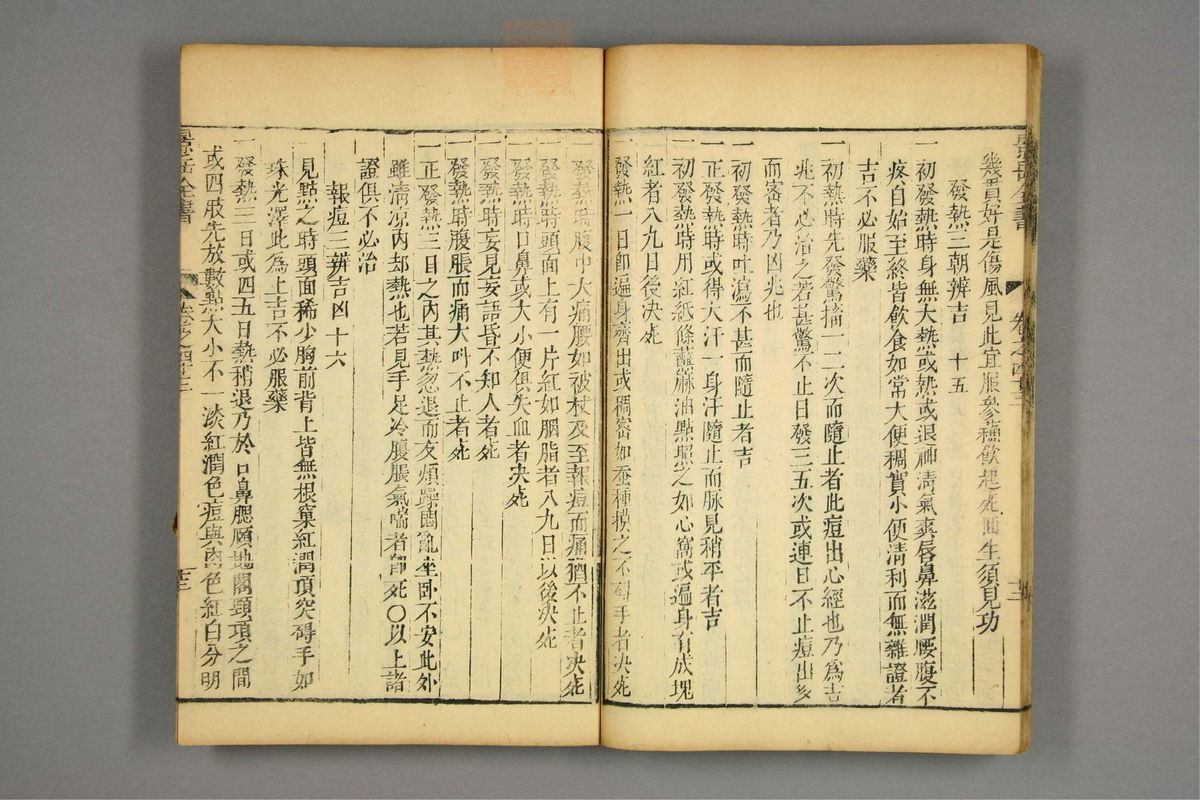 景岳全書
卷之四十三
幾貫好是傷風見此宜服參蘇飲起死回生須見功
發熱三朝辨吉 十五
一初發熱時身無大熱或熱或退神清氣爽唇鼻滋潤腰腹不
疼自始至終皆飲食如常大便稠實小便清利而無雜證者
吉不必服藥
一初熱時先發驚搐一二次而隨止者此痘出心經也乃為吉
兆不必治之若甚驚不止日發三五次或連日不止痘出多
而密者乃凶兆也
一初發熱時吐瀉不甚而隨止者吉
一正發熱時或得大汗一身汗隨止而脉見稍平者吉
一初發熱時用紅紙條蘸蔴油點照之如心窩或遍身有成塊
紅者八九日後決死
一發熱一日即遍身齊出或稠密如蚕種摸之不碍手者决死
一發熱時腹中大痛腰如被杖及至報痘而痛猶不止者决死
一發熱時頭面上有一片紅如胭脂者八九日以後决死
一發熱時口鼻或大小便俱失血者决死
一發熱時妄見妄語昏不知人者死
一發熱時腹脹而痛大叫不止者死
一正發熱三日之內其熱忽退而反煩躁悶亂坐卧不安此外
雖清凉內却熱也若見手足冷腹脹氣喘者即死〇以上諸
證俱不必治
報痘三辨吉凶十六
一見點之時頭面稀少胸前背上皆無根窠紅潤頂突碍手如
珠光澤此為上吉不必服藥
一發熱三日或四五日熱稍退乃於口鼻腮頤地閣頸項之間
或四肢先放數點大小不一淡紅潤色痘與肉色紅白分明
景岳全書
卷之四十三